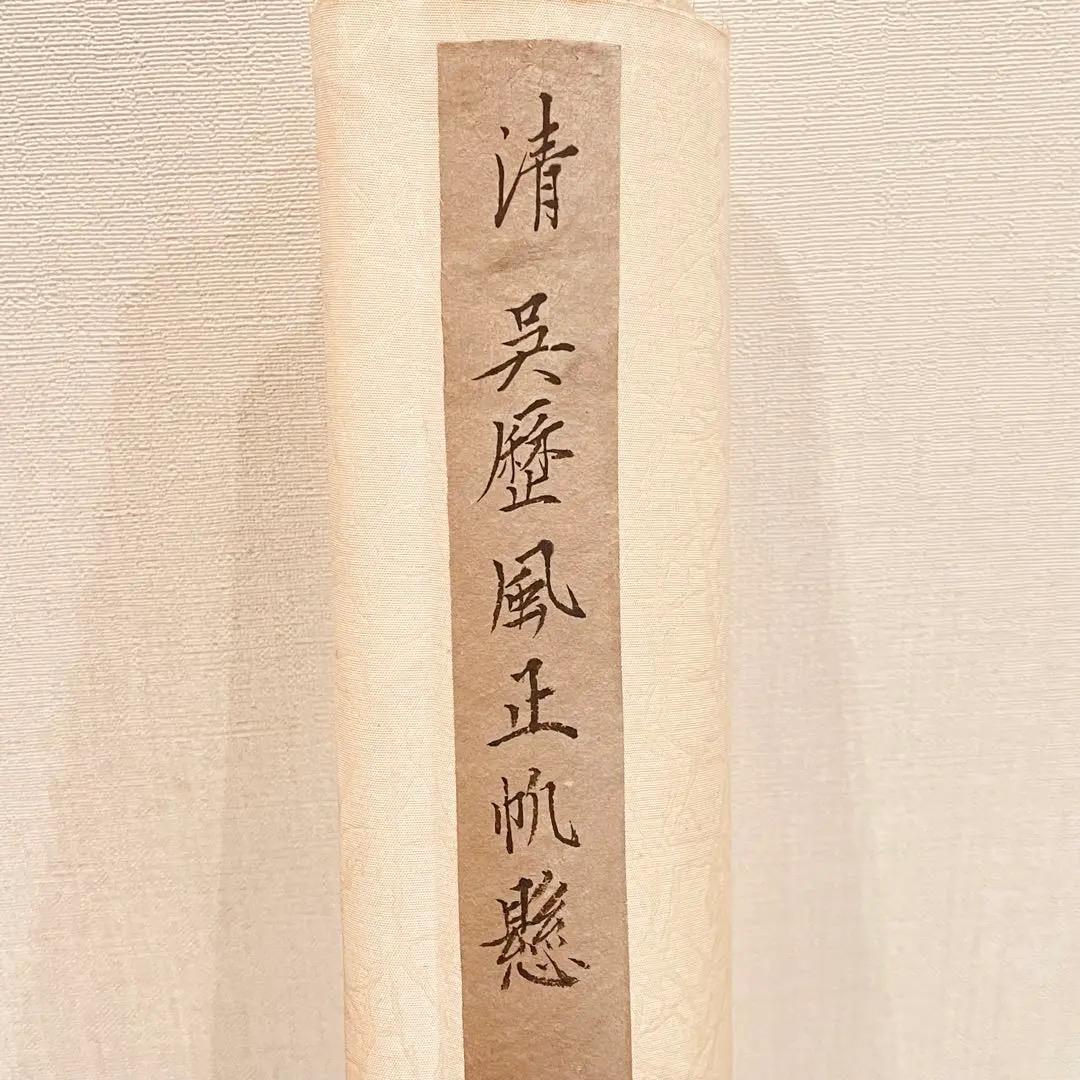 清 吳歷風正帆懸